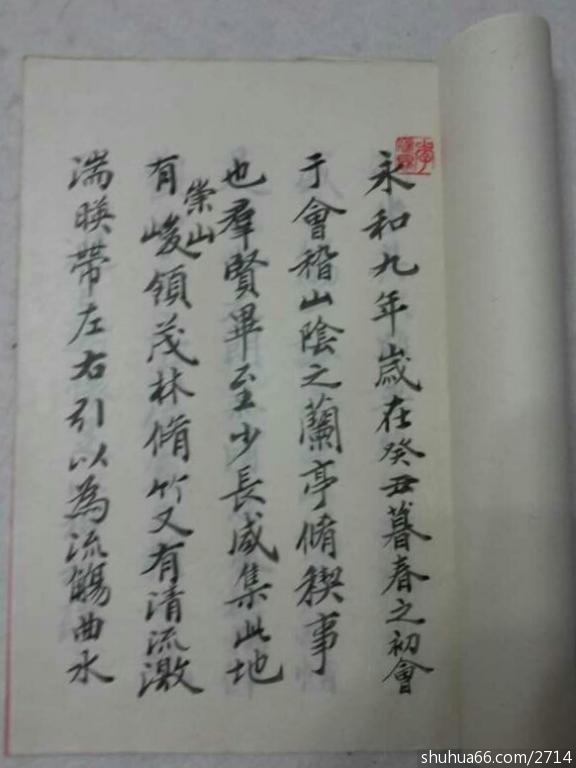 永和九年歲在癸丑暮春之初會
于會稽山陰之蘭亭脩稧事
也羣賢畢至少長咸集此地
有崇山峻領茂林脩竹又有清流激
湍暎帶左右引以為流觴曲水
shuhua66.com/2714